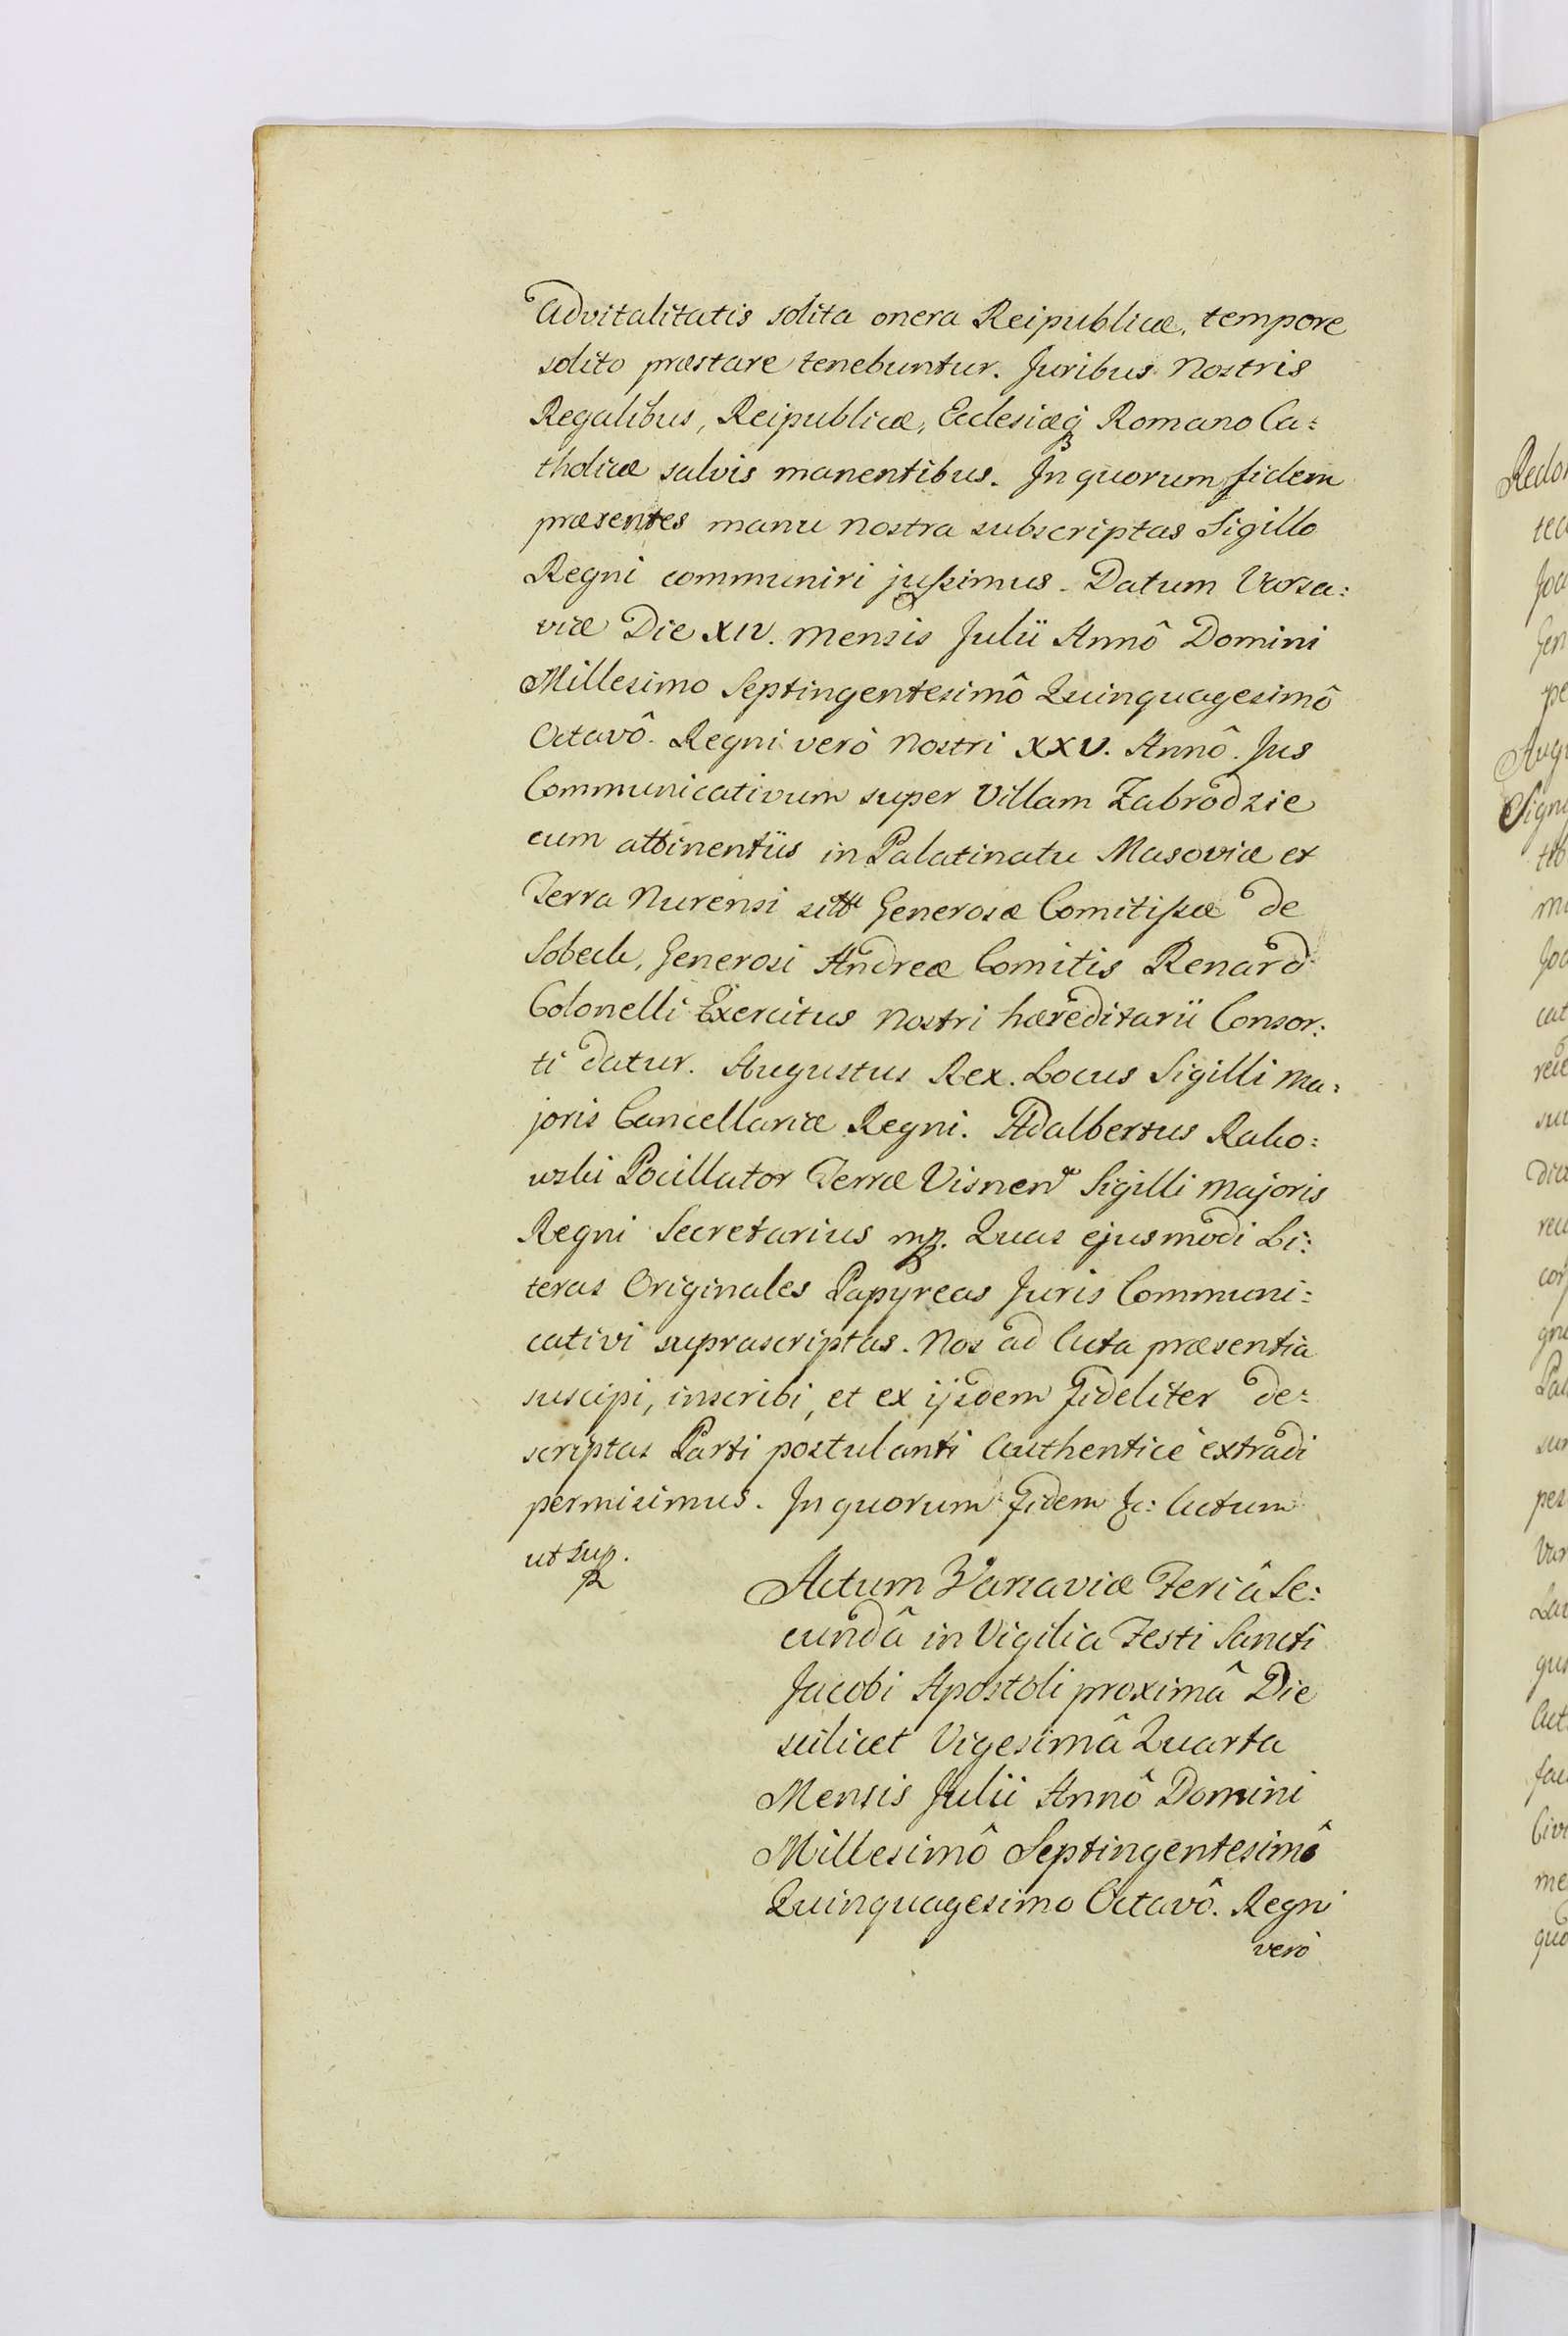 Advitalitatis solita onera Reipublicæ, tempore
solito præstare tenebuntur. Juribus Nostris
Regalibus, Reipublicæ, Ecclesiæq̃ Romano Ca:
tholicæ salvis manentibus. In quorum fidem
præsentes manu nostra subscriptas Sigillo
Regni communiri jussimus. Datum Varsa:
viæ Die XIV. mensis Julii Annô Domini
Millesimo Septingentesimô Quinquagesimô
Octavô. Regni verò nostri XXV. Annô. Jus
Communicativum super Villam Zabrodzie
cum attinentiis in Palatinatu Masoviæ et
Terra Nurensi Generosæ Comitissæ de
Sobeck, Generosi Andreæ Comitis Renard
Colonelli Exercitus Nostri hæreditarii Consor:
ti datur. Augustus Rex. Locus Sigilli Ma:
joris Cancellariæ Regni. Adalbertus Rako:
wski Pocillator Terræ Visnen̄ Sigilli Majoris
Regni Secretarius mp. Quas ejusmodi Li:
teras Originales Papyreas Juris Communi:
cativi suprascriptas. Nos ad Acta præsentia
suscipi, inscribi, et ex ijsdem fideliter de:
scriptas Parti postulanti Authenticè extradi
permisimus. In quorum fidem &c: Actum
ut sup.
Actum Varsaviæ Feriâ Se:
cundâ in Vigilia Festi Sancti
Jacobi Apostoli proximâ Die
scilicet Vigesimâ Quarta
Mensis Julii Annô Domini
Millesimô Septingentesimô
Quinquagesimo Octavô. Regni
verò